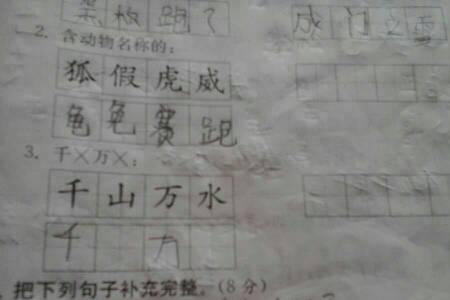 跑了 成门之雪
2. 含动物名称的:
狐假虎威
龟兔赛跑
3. 千×万×:
千山万水
千 万
把下列句子补充完整。(8分)